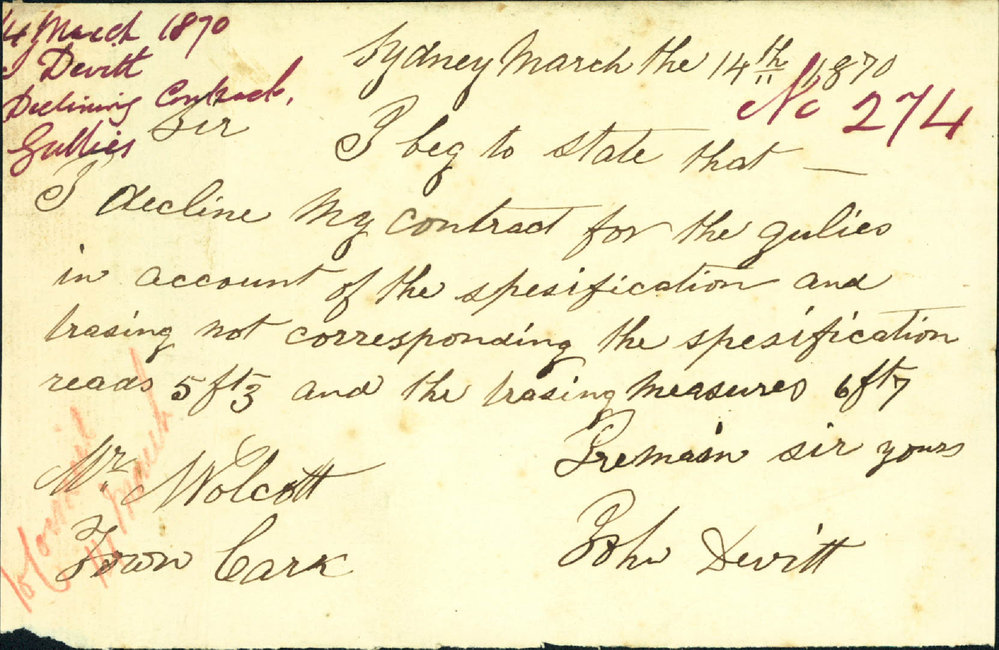 14 March 1870
J Devitt
Declining Contract,
Gullies
Sydney March the 14th 1870
No 274
Sir I beg to state that —
I decline my contract for the gulies
in account of the spesification and
trasing not corresponding the spesification
reads 5 ft 3 and the trasing measures 6 ft 7
I remain sir yours
Mr. Wolcott
Town Cark
John Devitt
14 March